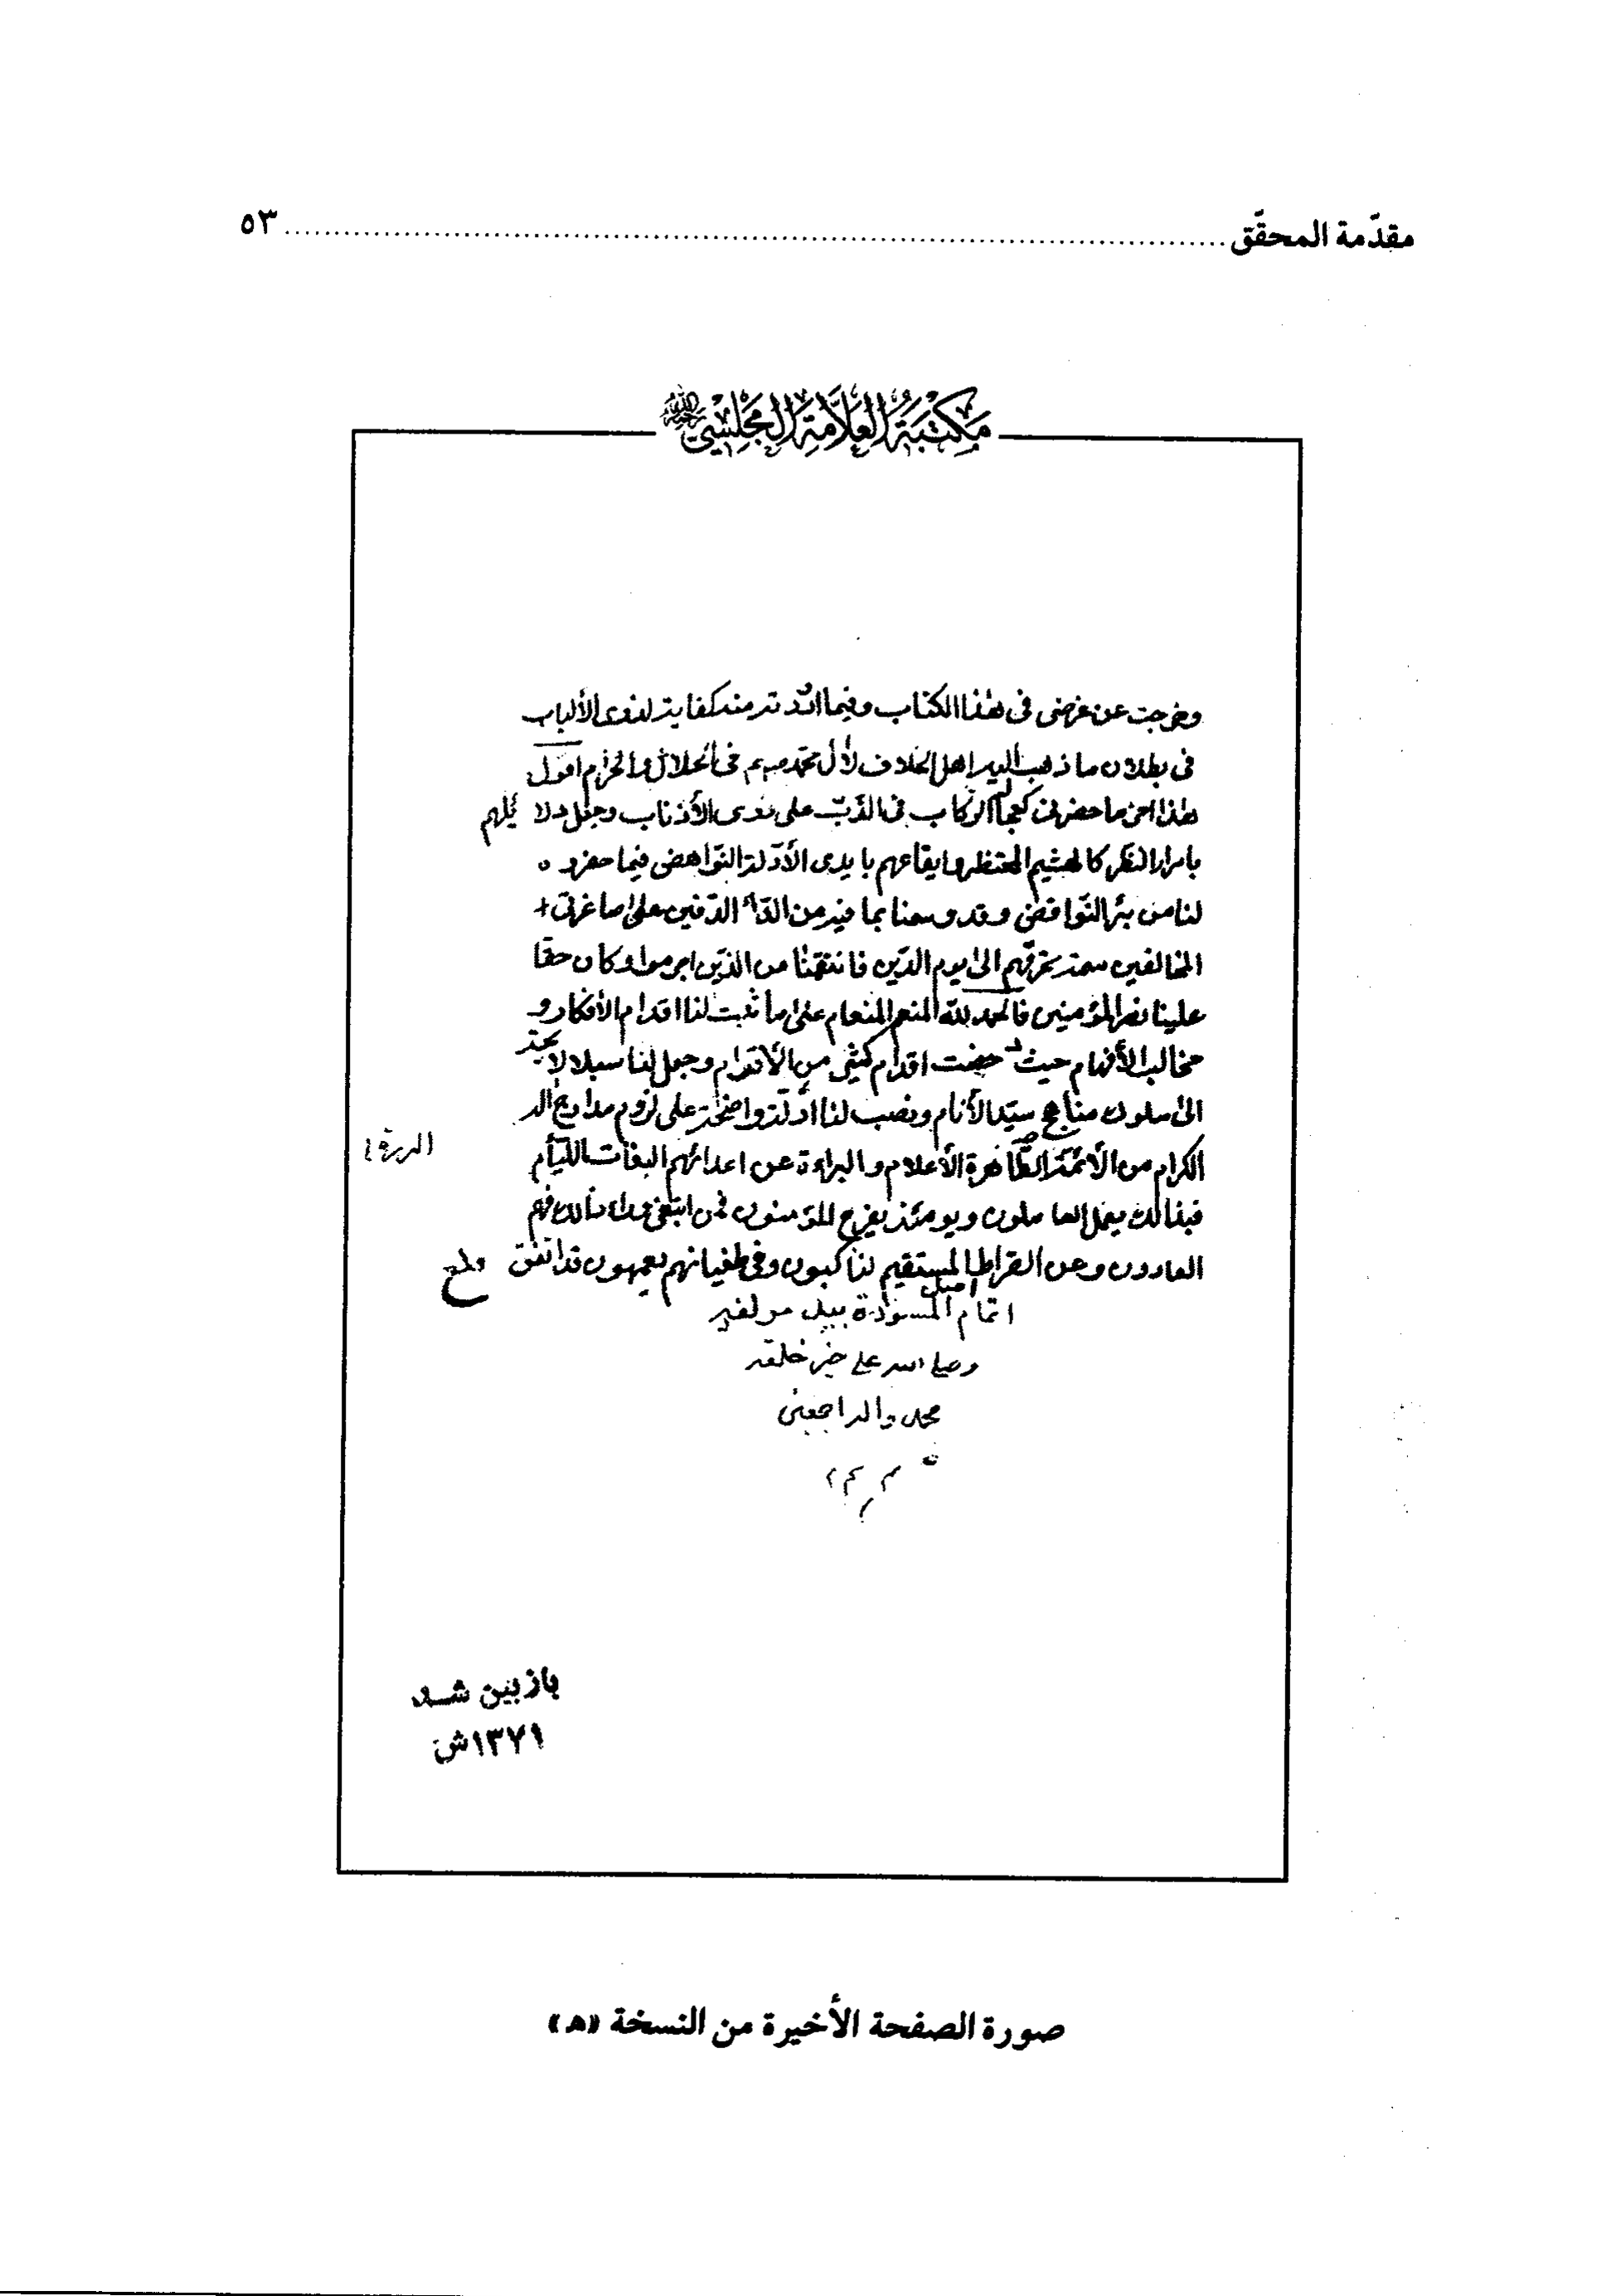 مقدّمة المحقّق ........ ٥٣
مكتبة العلامة المجلسي
وخرجت عن غرضي في هذا الكتاب وفيما اثبته منه كفاية لذوى الألباب
في بطلان ما ذهب اليه اهل الخلاف لآل محمد في الحلال والحرام اقول
هذا اخر ما حضرني الركاب في الذبّ على ذوى الأذناب وجعل
بامرار النظر كالهشيم المحتظر وايقاعهم بايدى الأدلة النواهض فيما حفروه
لنا من بئر النواقض وقد وسمنا بما فيه من الدّاء الدّفين على
المخالفين سمة يخزيهم الى يوم الدّين فانتقمنا من الذين اجرموا وكان حقا
علينا نصر المؤمنين فالحمد لله المنعم المنعام على ما ثبت لنا اقدام الأفكار و
مخالب الأفهام حيث دحضت اقدام كثير من الأقدام وجعل لنا سبلا
الى سلوك مناهج سيّد الأنام ونصب لنا ادلّة واضحة على لزوم مدارج
البررة
الكرام من الأئمّة الطّاهرة الأعلام والبراءة عن اعدائهم البغات اللئام
فبذالك يعمل العاملون ويومئذ يفرح المؤمنون فمن ابتغى وراء ذالك فهم
العادون وعن الصراط المستقيم لناكبون وفي طغيانهم يعمهون قد اتفق
اتمام المسودة بيد مولفه
وصلى الله على خير خلقه
محمد واله اجمعين
بازبين شد
١٣٧١ش
صورة الصفحة الأخيرة من النسخة «هـ»